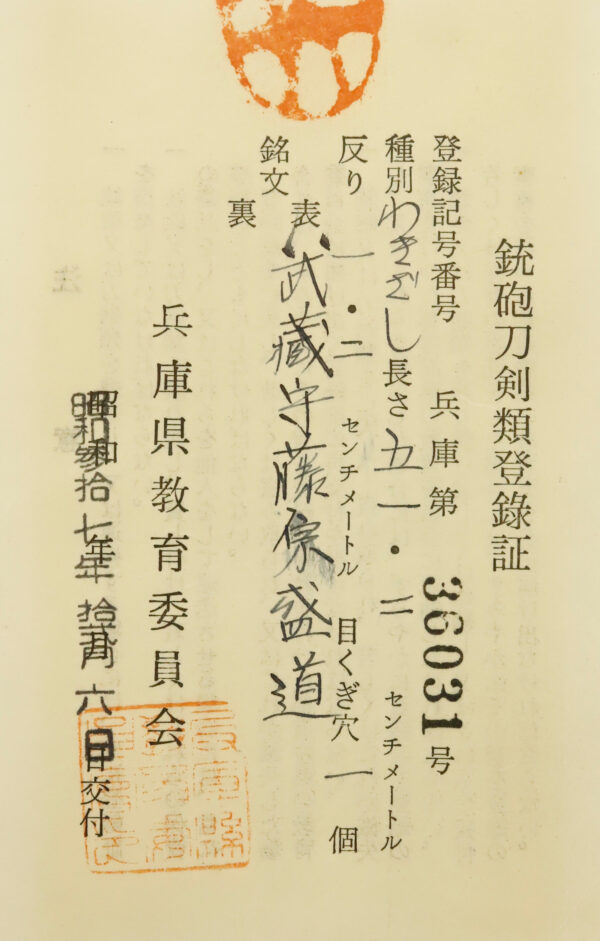 銃砲刀剣類登録証
登録記号番号 兵庫第 36031号
種別 わきざし 長さ 五一・三 センチメートル
反り 一・二 センチメートル 目くぎ穴 一 個
銘文 表 武藏守藤原盛道
裏
兵庫県教育委員会
昭和参拾七年拾弐月六日交付